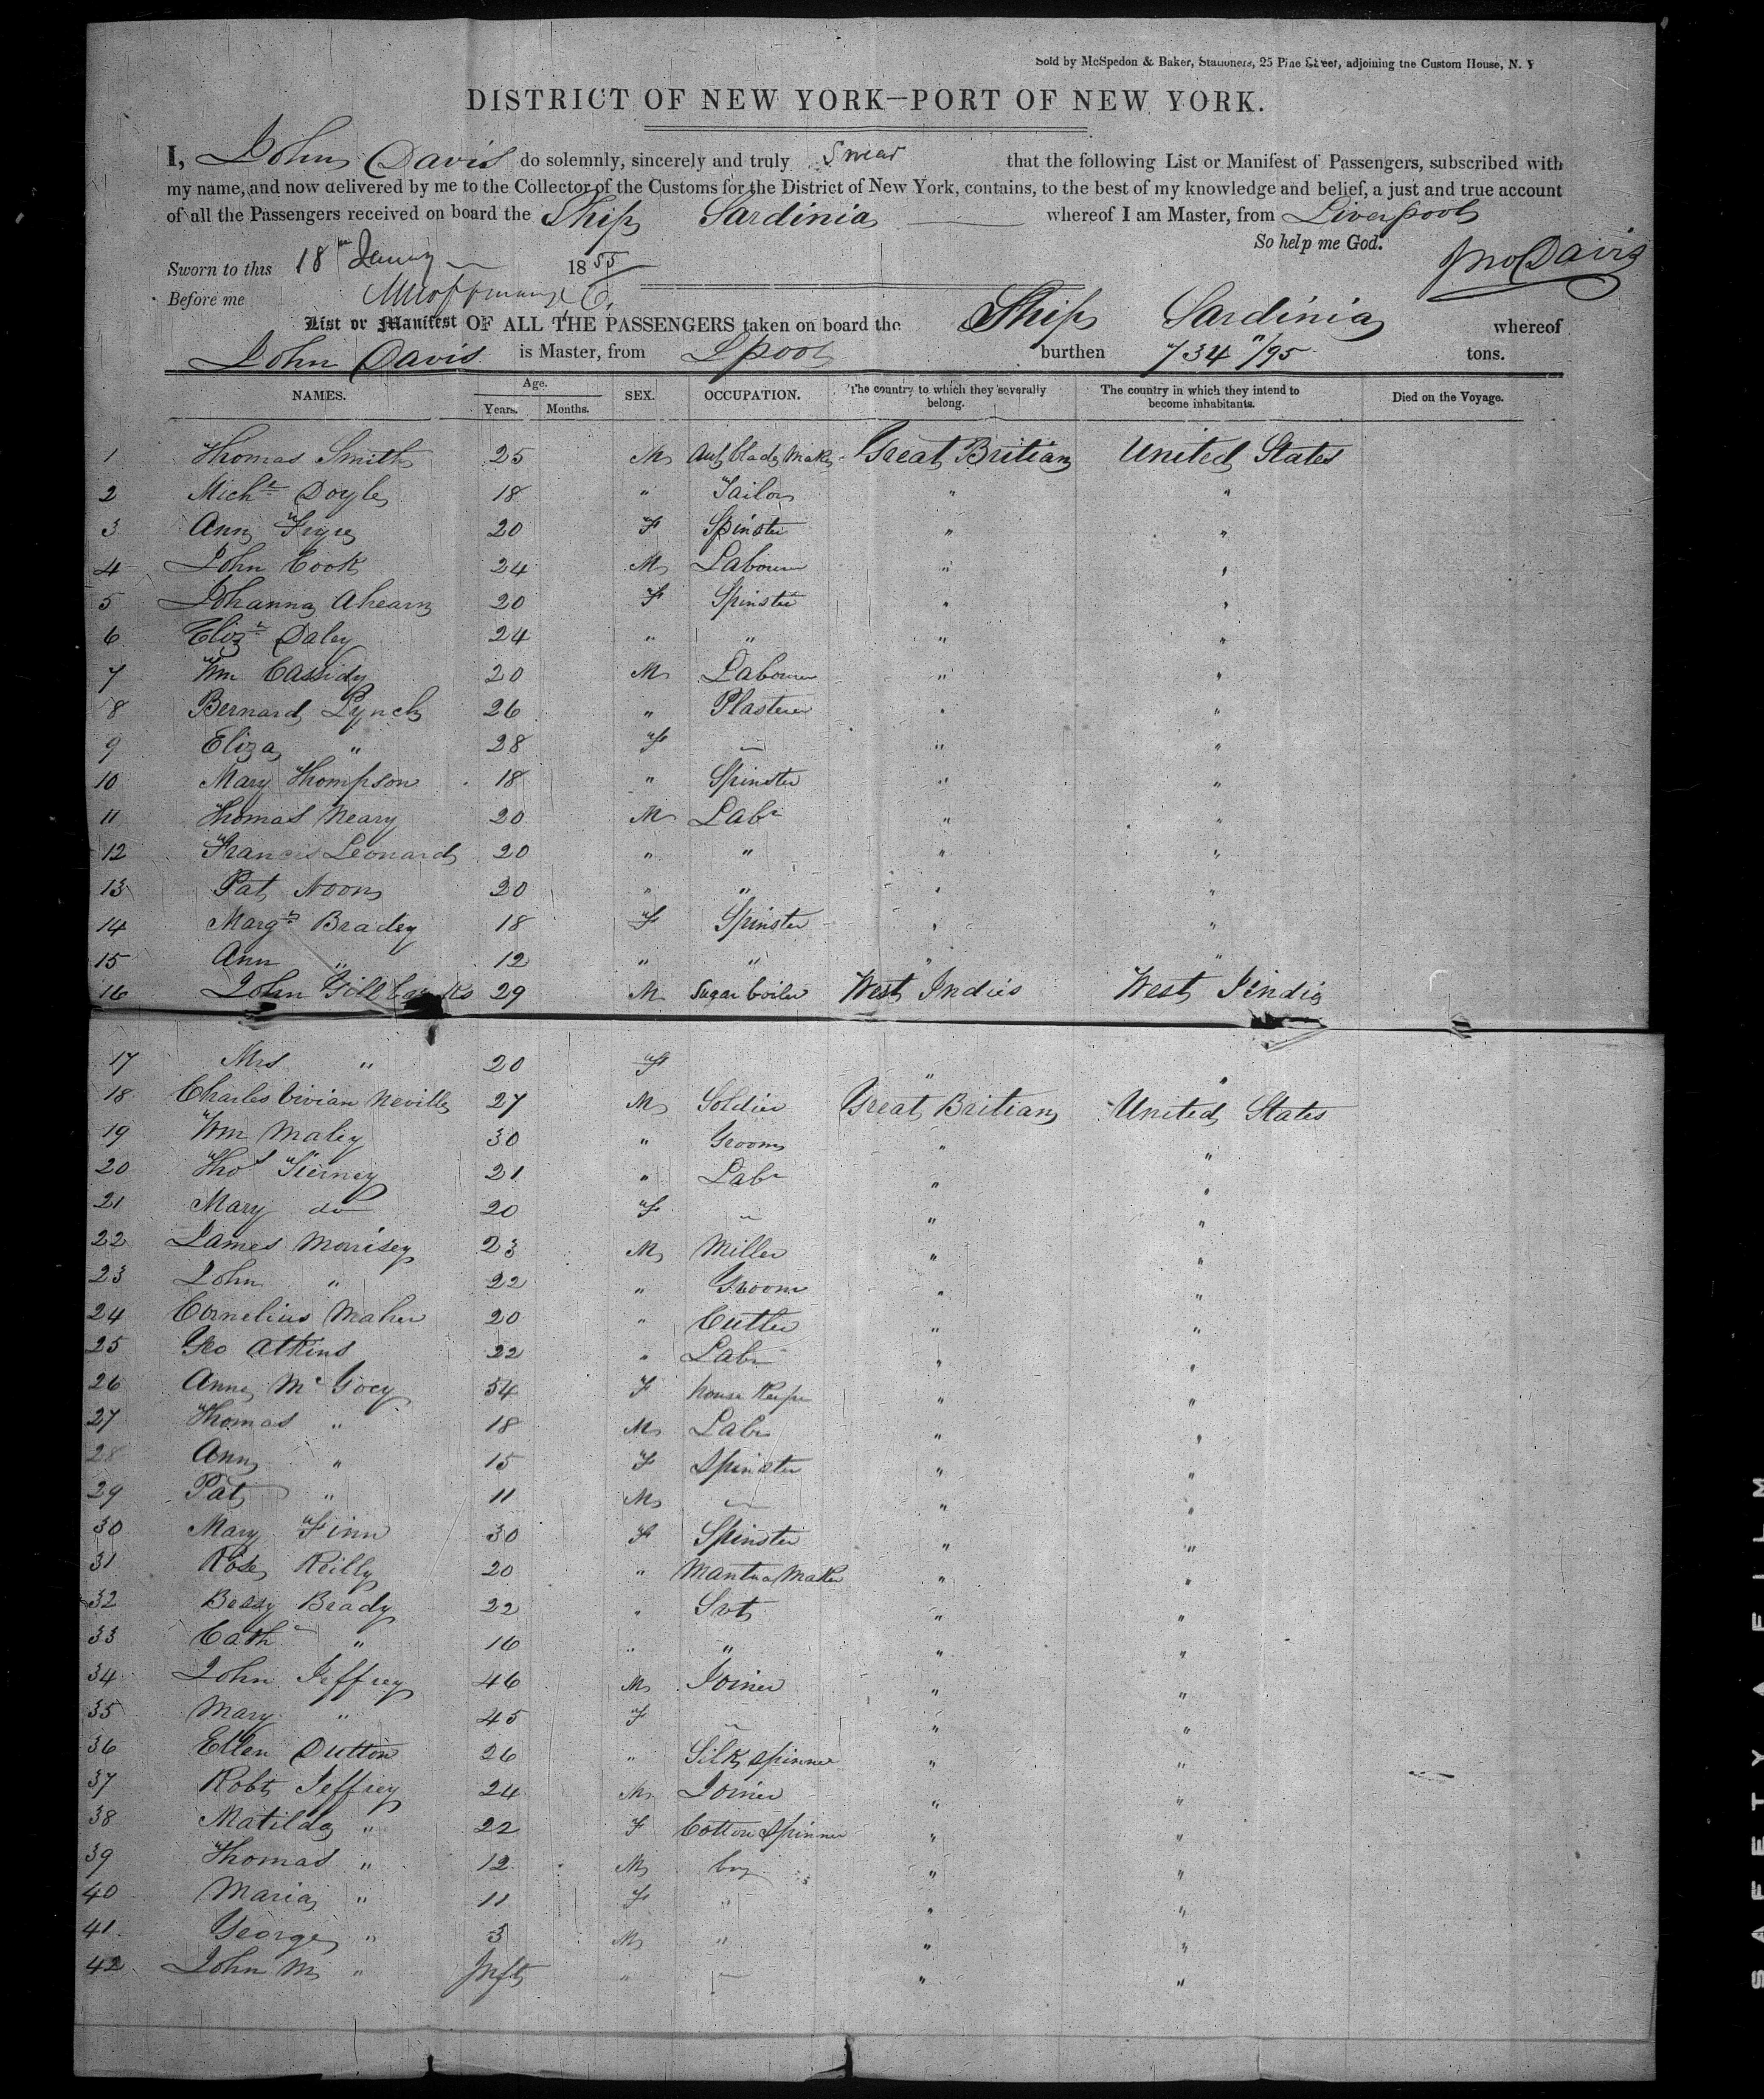 Sold by McSpedon & Baker, Stationers, 25 Pine Street, adjoining the Custom House, N. Y
DISTRICT OF NEW YORK—PORT OF NEW YORK.
I, John Davis do solemnly, sincerely and truly Swear that the following List or Manifest of Passengers, subscribed with
my name, and now delivered by me to the Collector of the Customs for the District of New York, contains, to the best of my knowledge and belief, a just and true account
of all the Passengers received on board the Ship Sardinia whereof I am Master, from Liverpool
So help me God.
Jno Davis
Sworn to this 18 1855
Before me
List or Manifest OF ALL THE PASSENGERS taken on board the Ship Sardinia whereof
John Davis is Master, from Lpool burthen 734 11/95 tons.
NAMES. Age. Years. Months. SEX. OCCUPATION. The country to which they severally belong. The country in which they intend to become inhabitants. Died on the Voyage.
1 Thomas Smith 25 M Great Britian United States
2 Michl Doyle 18 " Tailor " "
3 Ann 20 F Spinster " "
4 John Cook 24 M Labourer " "
5 Johanna Ahearn 20 F Spinster " "
6 Elizh Daley 24 " " " "
7 Wm Cassidy 20 M Labourer " "
8 Bernard Lynch 26 " Plasterer " "
9 Eliza " 28 F " "
10 Mary Thompson 18 " Spinster " "
11 Thomas Neary 20 M Labr " "
12 Francis Leonard 20 " " " "
13 Pat Noon 20 " " " "
14 Margt Bradey 18 F Spinster " "
15 Ann " 12 " " " "
16 John 29 M Sugar boiler West Indies West Indie
17 Mrs " 20 F " "
18 Charles Vivian Neville 27 M Soldier Great Britian United States
19 Wm Maley 30 " Groom " "
20 Thos Tierney 21 " Labr " "
21 Mary do 20 F " "
22 James Morrisey 23 M Miller " "
23 John " 22 " Groom " "
24 Cornelius Maher 20 " Cutler " "
25 Geo Atkins 22 " Labr " "
26 Anne McGoey 54 F house Keeper " "
27 Thomas " 18 M Labr " "
28 Ann " 15 F Spinster " "
29 Pat " 11 M " "
30 Mary Finn 30 F Spinster " "
31 Rose Reilly 20 " Mantua Maker " "
32 Bessy Brady 22 " Svt " "
33 Cathe " 16 " " " "
34 John Jeffrey 46 M Joiner " "
35 Mary " 45 F " "
36 Ellen Dutton 26 " Silk Spinner " "
37 Robt Jeffrey 24 M Joiner " "
38 Matilda " 22 F Cotton Spinner " "
39 Thomas " 12 M boy " "
40 Maria " 11 F " " "
41 George " 3 M " " "
42 John M " Inft " " "
SAFETY FILM